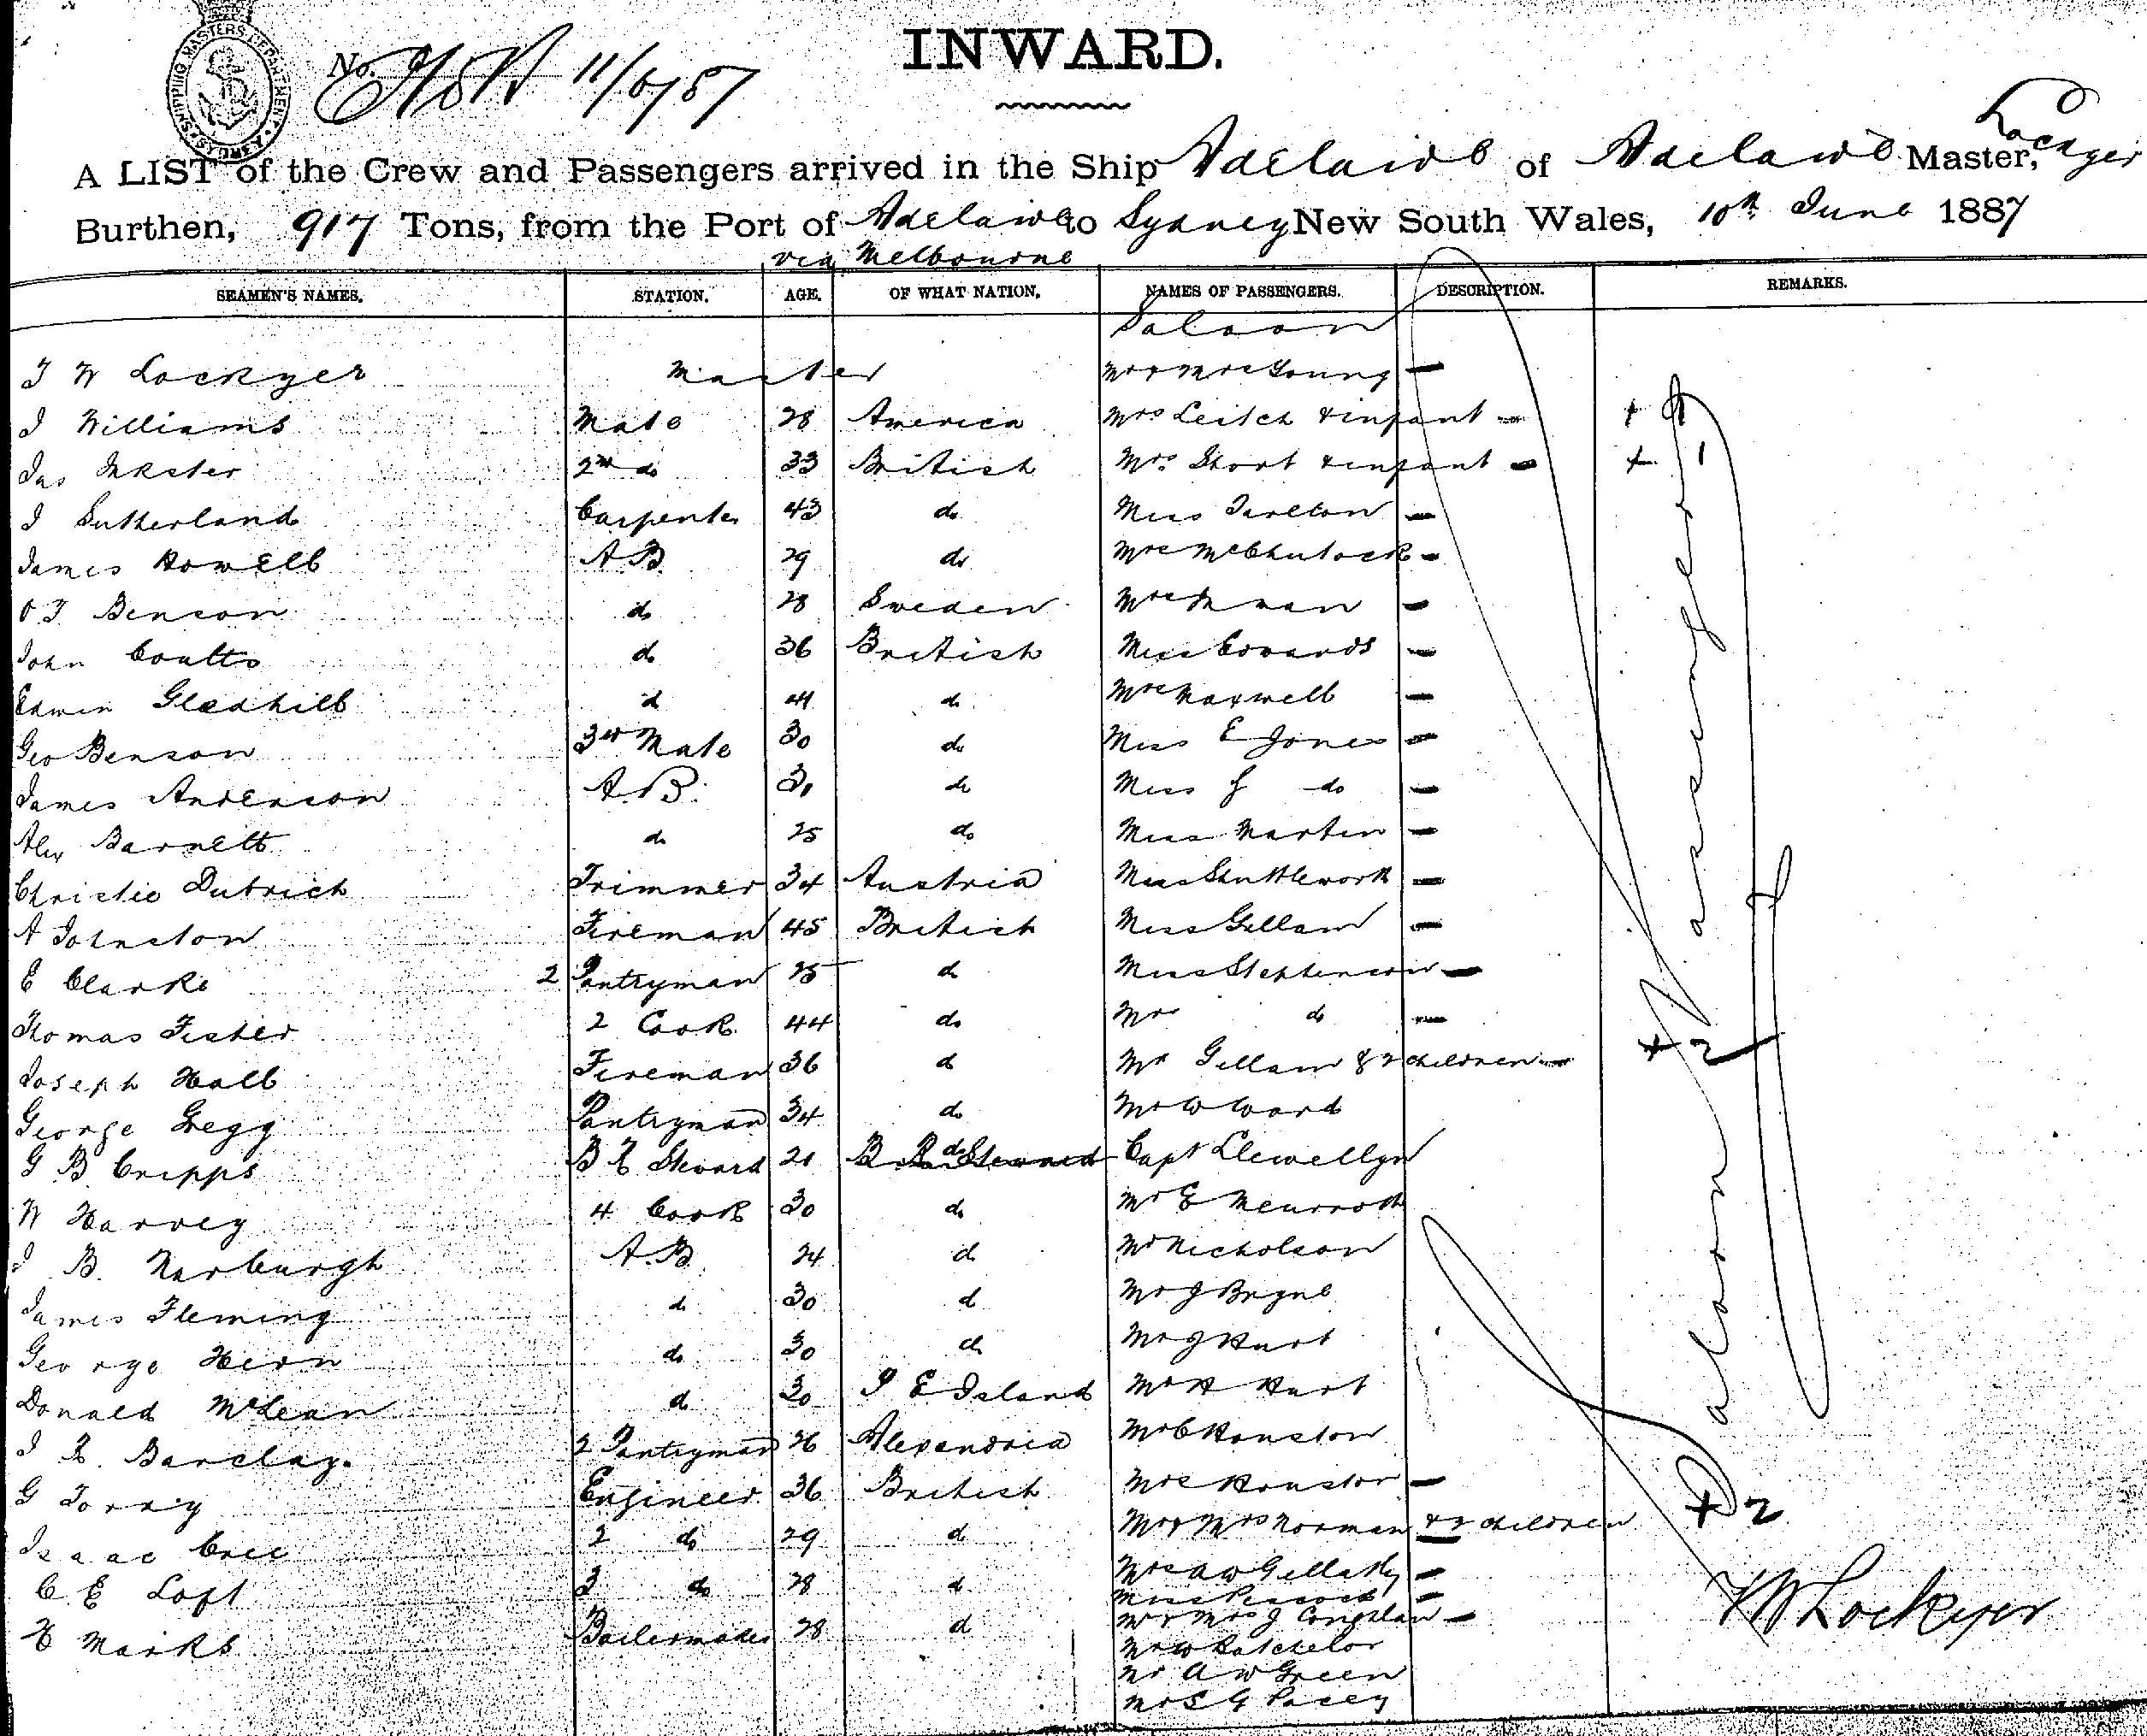 SHIPPING MASTERS DEPARTMENT
INWARD.
No. 11/6/87
A LIST of the Crew and Passengers arrived in the Ship Adelaide of Adelaide Master, Lockyer
Burthen, 917 Tons, from the Port of Adelaide to Sydney New South Wales, 10th June 1887
via Melbourne
SEAMEN'S NAMES. STATION. AGE. OF WHAT NATION. NAMES OF PASSENGERS. DESCRIPTION. REMARKS.
Saloon
J W Lockyer Master Mr & Mrs Young —
J Williams Mate 28 America Mrs Leitch & infant —
Jas Inkster 2nd do 33 British Mrs Short & infant —
J Sutherland Carpenter 43 do Miss Tarlton —
James Howell A.B 29 do Mrs McClintock —
O J Benson do 28 Sweden Mrs
John Coutts do 36 British Miss Edwards —
Edwin Gledhill d 41 do Mrs Maxwell —
Geo Benson 3rd Mate 30 do Miss E Jones —
James Anderson A.B. 31 do Miss J do —
Alex Barnett do 25 do Miss Martin —
Christie Dutrich Trimmer 34 Austria Miss Shuttleworth —
A Johnston Fireman 45 British Miss Gillam —
E Clarke 2 Pantryman 25 d Miss Stephenson —
Thomas Fisher 2 Cook 44 do Mr do —
Joseph Hall Fireman 36 d Mr Gillam & 2 children —
George Gregg Pantryman 34 do Mr W Ward
G B Cripps B R Steward 21 do Capt Llewellyn
W Harvey 4 Cook 30 do Mr E
J B. Narburgh A.B. 24 d Mr Nicholson
James Fleming d 30 d Mr J Bryne
George Hern do 30 d Mr J Hart
Donald McLean d 30 P E Island Mr H Hart
J R. Barclay. 2 Pantryman 26 Alexandria Mr C Houston
G Torry Engineer 36 British Mrs Houston —
Isaac Cree 2 do 29 d Mr & Mrs Norman & 2 children
C E Loft 3 do 28 d Mrs A W Gellatly —
Miss Peacock —
H Marks Boilermaker 28 d Mr & Mrs J Conghlan —
Mr W Batchelor
Mr A W Green
Mr S G Pacey
Saloon Passengers
J W Lockyer